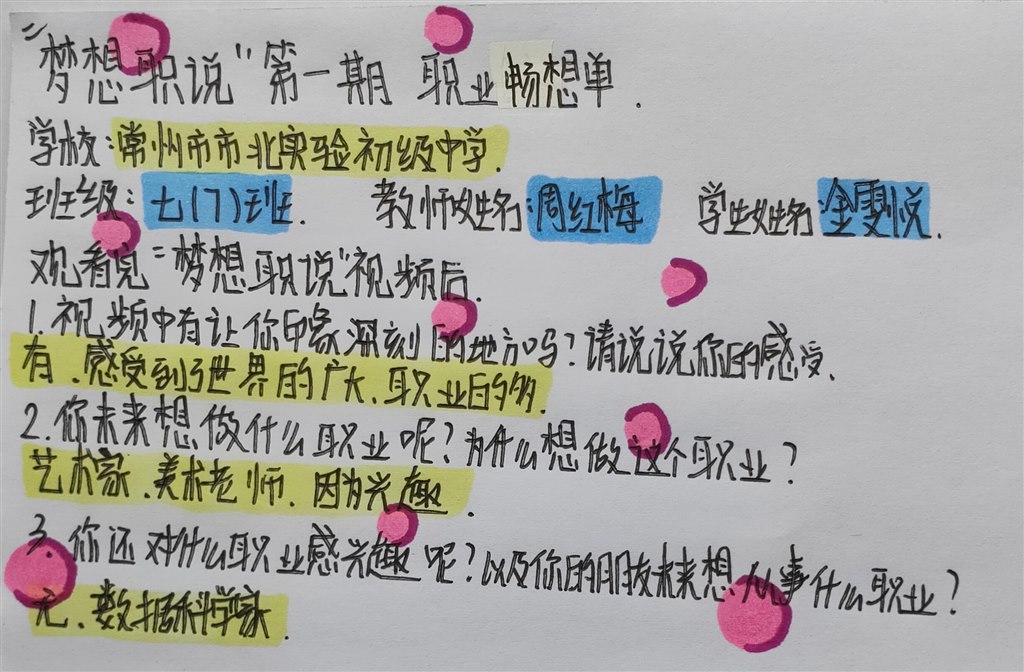 "梦想职说"第一期 职业畅想单.
学校:常州市市北实验初级中学.
班级:七(7)班. 教师姓名:周红梅 学生姓名:金雯悦.
观看完"梦想职说"视频后.
1.视频中有让你印象深刻的地方吗?请说说你的感受.
有、感受到了世界的广大、职业的多.
2.你未来想做什么职业呢?为什么想做这个职业?
艺术家、美术老师、因为兴趣.
3.你还对什么职业感兴趣呢?以及你的朋友未来想从事什么职业?
无、数据科学家.